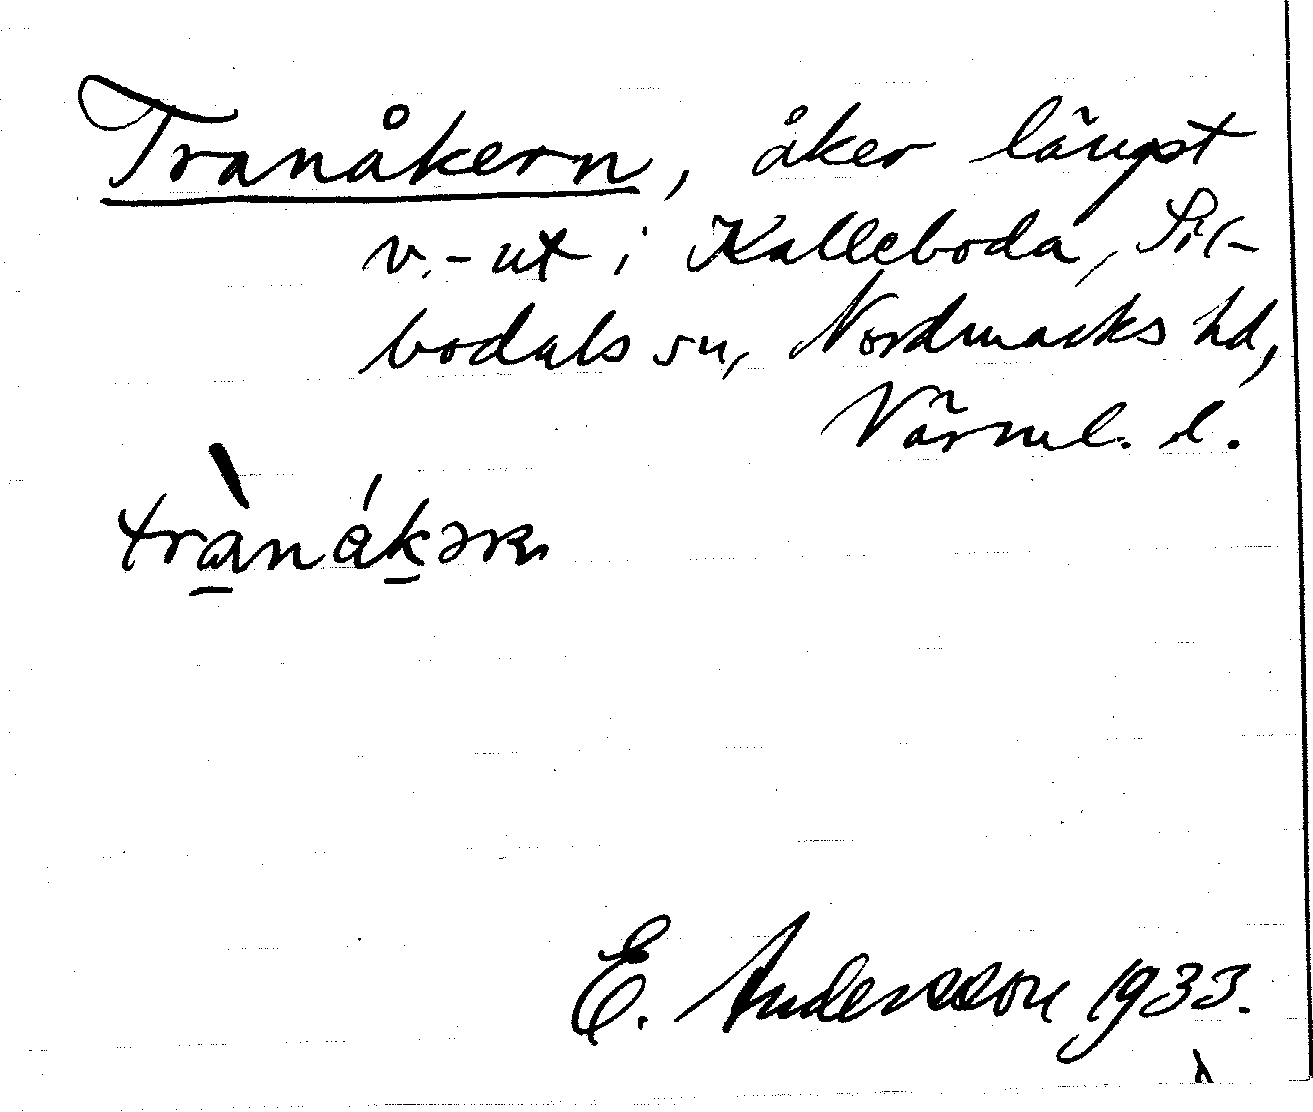 Tranåkern, åker längst
v.-ut i Kalleboda, Sil-
bodals sn, Nordmarks hd,
Värml. l.
trànákərn
E. Andersson 1933.